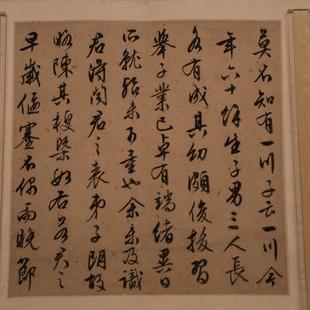 莫不知有一川子云一川今
年六十餘生子男三人長
各有成其幼頗俊拔習
舉子業已卓有端緒異日
所就殆未可量也余未及識
君時聞君之表弟子陰故
略陳其梗槩如右若君之
早歲偃蹇不偶而晚節